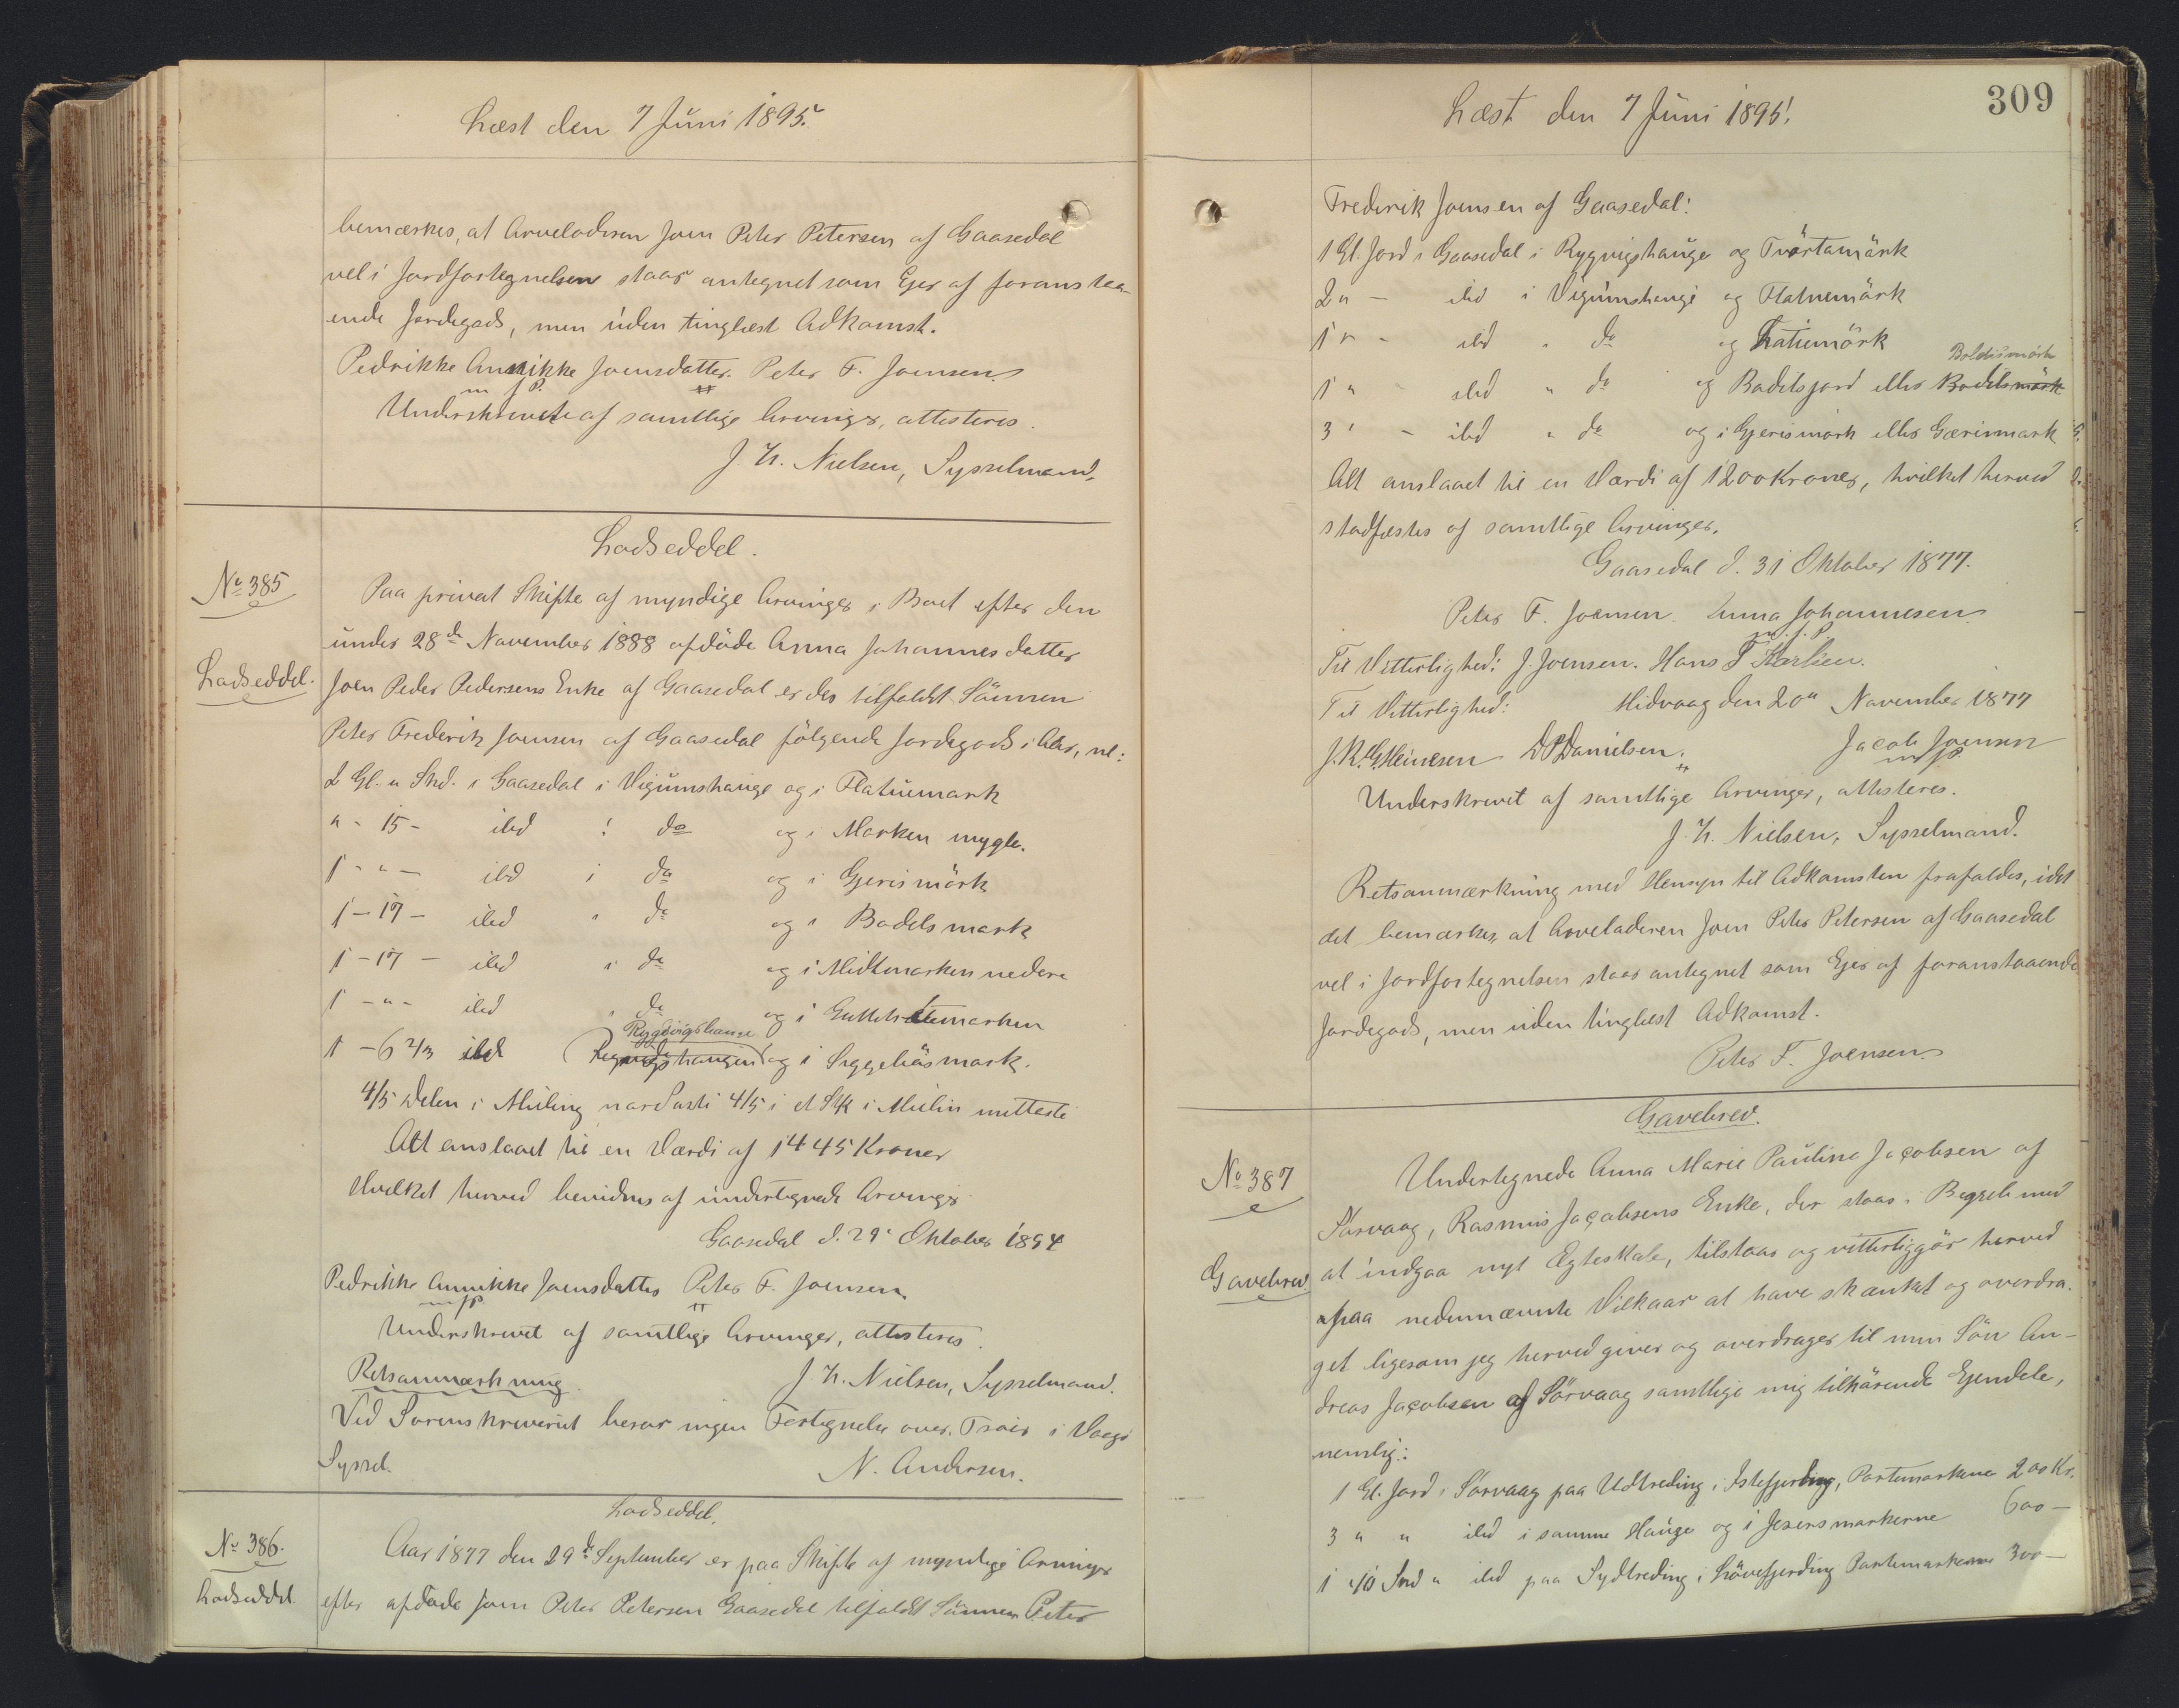 Læst den 7 Juni 1895.
bemærkes, at Arveladeren Joen Peter Petersen af Gaasedal
vel i Jordfortegnelsen staar antegnet som Ejer af foranstaa-
ende Jordegods, men uden tinglæst Adkomst.
Pedrikke Annikke Joensdatter. Peter F. Joensen.
m f P.
Underskrevet af samtlige Arvinger, attesteres.
J. H. Nielsen, Sysselmand.
Lodseddel.
No 385
Lodseddel.
Paa privat Skifte af myndige Arvinger i Boet efter den
under 28de November 1888 afdöde Anna Johannesdatter
Joen Peder Pedersens Enke af Gaasedal er der tilfaldt Sönnen
Peter Frederik Joensen af Gaasedal fölgende Jordegods i Arv, nl:
2 Gl. " Skd. i Gaasedal i Vigumshauge og i Flatnemark
" - 15 - ibd i do og i Marken mygle.
1 - " - ibd i do og i Gjerismörk
1 - 17 - ibd " do og i Badelsmark
1 - 17 - ibd i do og i Midtmarken nedere
1 - " - ibd " do og i
1 - 6 2/3 ibd Rygvigshauge og i Syggehäsmark.
4/5 Delen i Muling nardasti 4/5 i et Stk i Mulin mittasti
Alt anslaaet til en Værdi af 1445 Kroner
Hvilket herved bevidnes af undertegnede Arvinger
Gaasedal d. 29' Oktober 1894
Pedrikke Annikke Joensdatter Peter F. Joensen.
m f P
Underskrevet af samtlige Arvinger, attesteres.
J. H. Nielsen, Sysselmand.
Retsanmærkning.
Ved Sorenskriveriet beror ingen Fortegnelse over Traër i Vaagö
Syssel.
N. Andersen.
Lodseddel.
No 386.
Lodseddel.
Aar 1877 den 29de September er paa Skifte af myndige Arvinger
efter afdöde Joen Peter Petersen Gaasedal tilfaldt Sönnen Peter
309
Læst den 7 Juni 1895!
Frederik Joensen af Gaasedal:
1 Gl. Jord i Gaasedal i Rygvigshauge og Tvörtamärk
2 " - ibd i Vigumshauge og Flatnemärk
1 " - ibd " do og Latiemörk
Boldismörk
1 " - ibd " do og Badelsjord eller Badelsmörk
3 " - ibd " do og i Gjerismörk eller Gærismark
Alt anslaaet til en Værdi af 1200 Kroner, hvilket herved
stadfæstes af samtlige Arvinger.
Gaasedal d. 31 Oktober 1877.
Peter F. Joensen. Anna Johannesen
m. f. P.
Til Vitterlighed: J. Joensen. Hans
Til Vitterlighed: Midvaag den 20" November 1877
J. R. G. Heinesen D P Danielsen. Jacob Joensen
m f P
Underskrevet af samtlige Arvinger, attesteres.
J. H. Nielsen, Sysselmand.
Retsanmærkning med Hensyn til Adkomsten frafaldes, idet
det bemærkes, at Arveladeren Joen Peter Petersen af Gaasedal
vel i Jordfortegnelsen staar antegnet som Ejer af foranstaaende
Jordegods, men uden tinglæst Adkomst.
Peter F. Joensen.
Gavebrev.
No 387
Gavebrev.
Undertegnede Anna Marie Pauline Jacobsen af
Sörvaag, Rasmus Jacobsens Enke, der staar i Begreb med
at indgaa nyt Ægteskab, tilstaar og vitterliggör herved
paa nedennævnte Vilkaar at have skænket og overdra-
get ligesom jeg herved giver og overdrager til min Sön An-
dreas Jacobsen af Sörvaag samtlige mig tilhörende Ejendele,
nemlig:
1 Gl. Jord i Sörvaag paa Udtreding i Istefjerding, Partemarkene 200 Kr.
3 " " ibd i samme Hauge og i Jezersmarkerne 600 -
1 " 10 Snd " ibd paa Sydtreding i Lövefjerding Partemarkerne 300 -